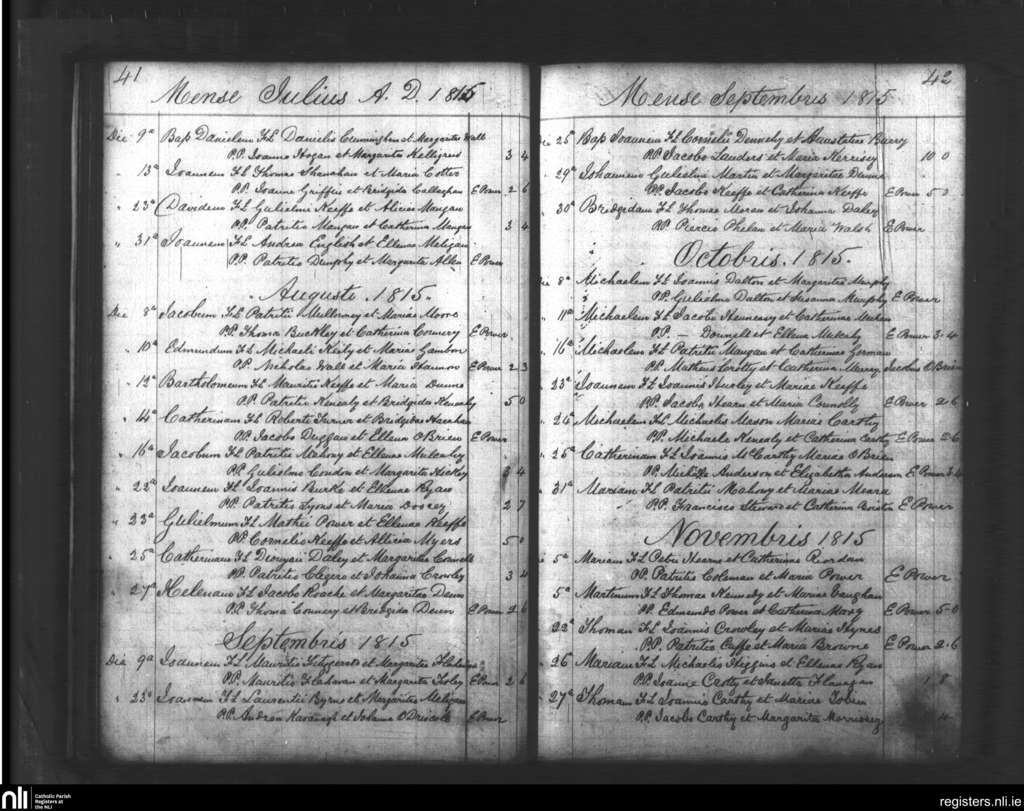 41
Mense Julius A. D. 1815
Die 9a Bap Danielem FL Danielis Cunningham et Margaritae Wall
P.P. Joanne Hogan et Margarita Kelligrew 3 4
" 13a Joannem FL Thomae Shanahan et Maria Cotter
P.P. Joanne Griffin et Bridgida Callaghan E Power 2 6
" 23a Davidem FL Gulielmi Keeffe et Aliciae Mangan
P.P. Patritio Mangan et Catherina Mangan 3 4
" 31a Joannem FL Andrea English et Ellenae Meligan
P.P. Patritio Dunphy et Margarita Allen E Power
Augusti. 1815.
Die 8a Jacobum FL Patritii Mullowney et Mariae Moore
P.P. Thoma Buckley et Catherina Connery E Power
" 10a Edmundum FL Michaeli Kiely et Marias Gambon
P.P. Nicholas Wall et Maria Hannon E Power 2 3
" 12a Bartholomeum FL Mauritii Keeffe et Maria Dunne
P.P. Patritio Kenealy et Bridgida Kenealy 5 0
" 14a Catherinam FL Roberti Turner et Bridgidae
P.P. Jacobo Duggan et Ellena O Brien E Power
" 16a Jacobum FL Patritii Mahony et Ellenae Mulcahy
P.P. Gulielmo Condon et Margarita Hickey 3 4
" 22a Joannem FL Joannis Burke et Ellenae Ryan
P.P. Patritio Lyons et Maria Dorcey 2 7
" 23a Gulielmum FL Mathei Power et Ellenae Keeffe
P.P. Cornelio Keeffe et Allicia Myers 5 0
" 25a Catherinam FL Dionysii Daley et Margaritae Connell
P.P. Patritio Clegero et Johanna Crowley 3 4
" 27a Helenam FL Jacobo Roache et Margaritae Deun
P.P. Thoma Connery et Bridgida Deun E Power 2 6
Septembris 1815
Die 9a Joannem FL Mauritii Fitzgerald et Margaritae Flahavan
P.P. Mauritio Flahavan et Margarita Foley E Power 2 6
" 23a Joannem FL Laurentii Byrne et Margaritae Meligan
P.P. Andrea Kavanagh et Johanna O Driscoll E Power
42
Mense Septembris 1815
25a Bap Joannem FL Cornelii Dennehy et Anastatiae Barry
P.P. Jacobo Landers et Maria Kerrisey 10 0
29a Johannem Gulielmi Martin et Margaritae Dunne
P.P. Jacobo Keeffe et Catherina Keeffe E Power 5 0
30a Bridgidam FL Thomae Moran et Johanna Daley
P.P. Piercio Phelan et Maria Walsh E Power
Octobris. 1815.
8a Michaelem FL Joannis Dalton et Margaritae Murphy
P.P. Gulielmo Dalton et Susanna Murphy E Power
11a Michaelem FL Jacobi Hennessy et Catherinae
P.P. — Donnell et Ellena Mulcahy E Power 3.4
16a Michaelem FL Patritii Mangan et Catherinae Gorman
P.P. Matheus Crotty et Catherina Merry Jacobus O Brien
23a Joannem FL Joannis Hurley et Mariae Keeffe
P.P. Jacobo Hearn et Maria Connolly E Power 2.6
26a Michaelem FL Michaelis Mason Marias Carthy
P.P. Michaele Kenealy et Catherina Carthy E Power 2.6
25a Catherinam FL Joannis McCarthy Mariae O Brien
P.P. Anderson et Elizabetha Anderson E Power 3.4
31a Mariam FL Patritii Mahony et Mariae Meara
P.P. Francisco Steward et Catherina E Power
Novembris 1815
5a Mariam FL Petri Hearne et Catherinae Riordan
P.P. Patritio Coleman et Maria Power E Power
5a Martinum FL Thomae Kennedy et Mariae Vaughan
P.P. Edmundo Power et Catherina Mary E Power 5-0
22a Thomam FL Joannis Crowley et Mariae Hynes
P.P. Patritio Caffe et Maria Browne E Power 2.6
26 Mariam FL Michaelis Higgins et Ellenae Ryan
P.P. Joanne Crotty et Janetta Flanagan 1 8
27a Thomam FL Joannis Carthy et Mariae Tobin
P.P. Jacobo Carthy et Margarita Morrissey
nli Catholic Parish
Registers at
the NLI
registers.nli.ie